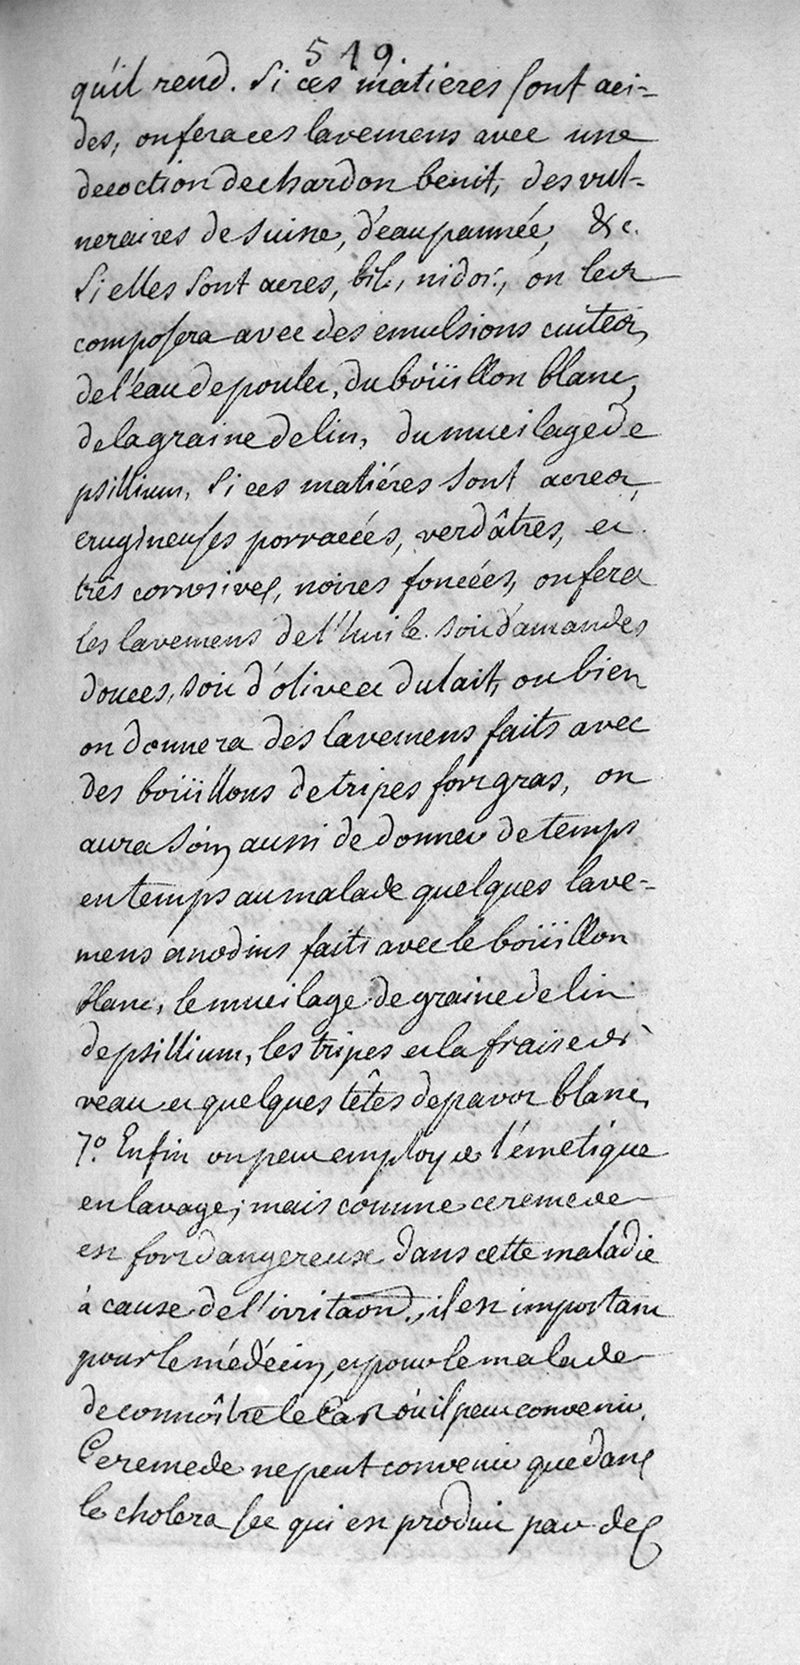 519
qu'il rend. Si ces matieres sont aci-
des, on fera ces lavemens avec une
decoction de chardon benit, des vul-
neraires de suisse, d'eau pannée, &c.
Si elles sont acres, bil., nidor., on les
composera avec des emulsions cuites,
de l'eau de poulet, du boüillon blanc,
de la graine de lin, du mucilage de
psillium, Si ces matiéres sont acres,
erugineuses porracées, verdâtres, et
très corrosives, noires foncées, on fera
les lavemens de l'huile soit d'amandes
douces, soit d'olive et du lait, ou bien
on donnera des lavemens faits avec
des boüillons de tripes fort gras, on
aura soin aussi de donner de temps
en temps au malade quelques lave-
mens anodins faits avec le boüillon
blanc, le mucilage de graine de lin
de psillium, les tripes et la fraise de
veau et quelques têtes de pavot blanc,
7.º Enfin on peut employer l'émetique
en lavage; mais comme ce remede
est fort dangereux dans cette maladie
à cause de l'irritaon., il est important
pour le médécin, et pour le malade
de connoître le cas où il peut convenir.
Ce remede ne peut convenir que dans
le cholera sec qui est produit par des